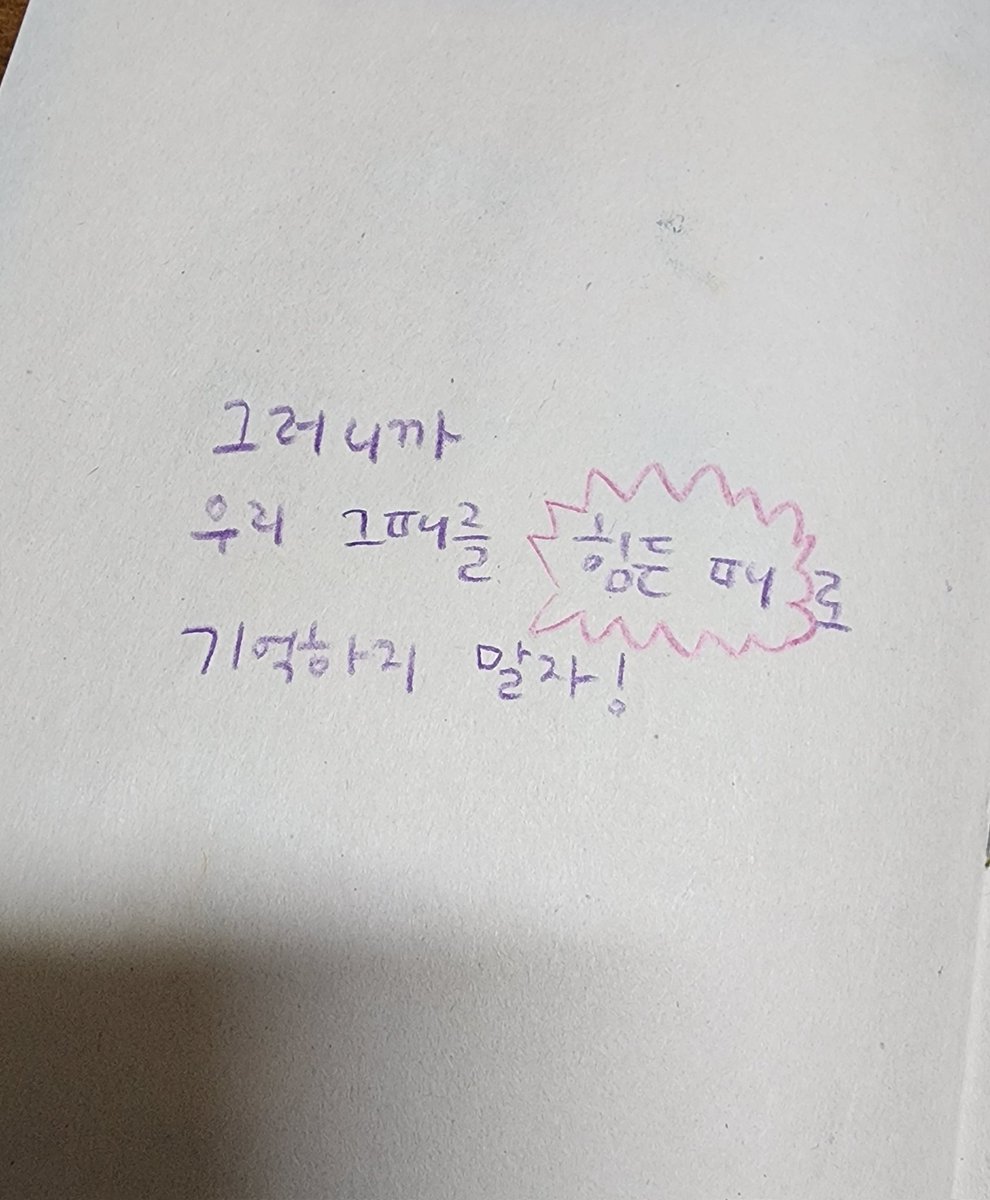 그러니까
우리 그때를 힘든 때로
기억하지 말자!